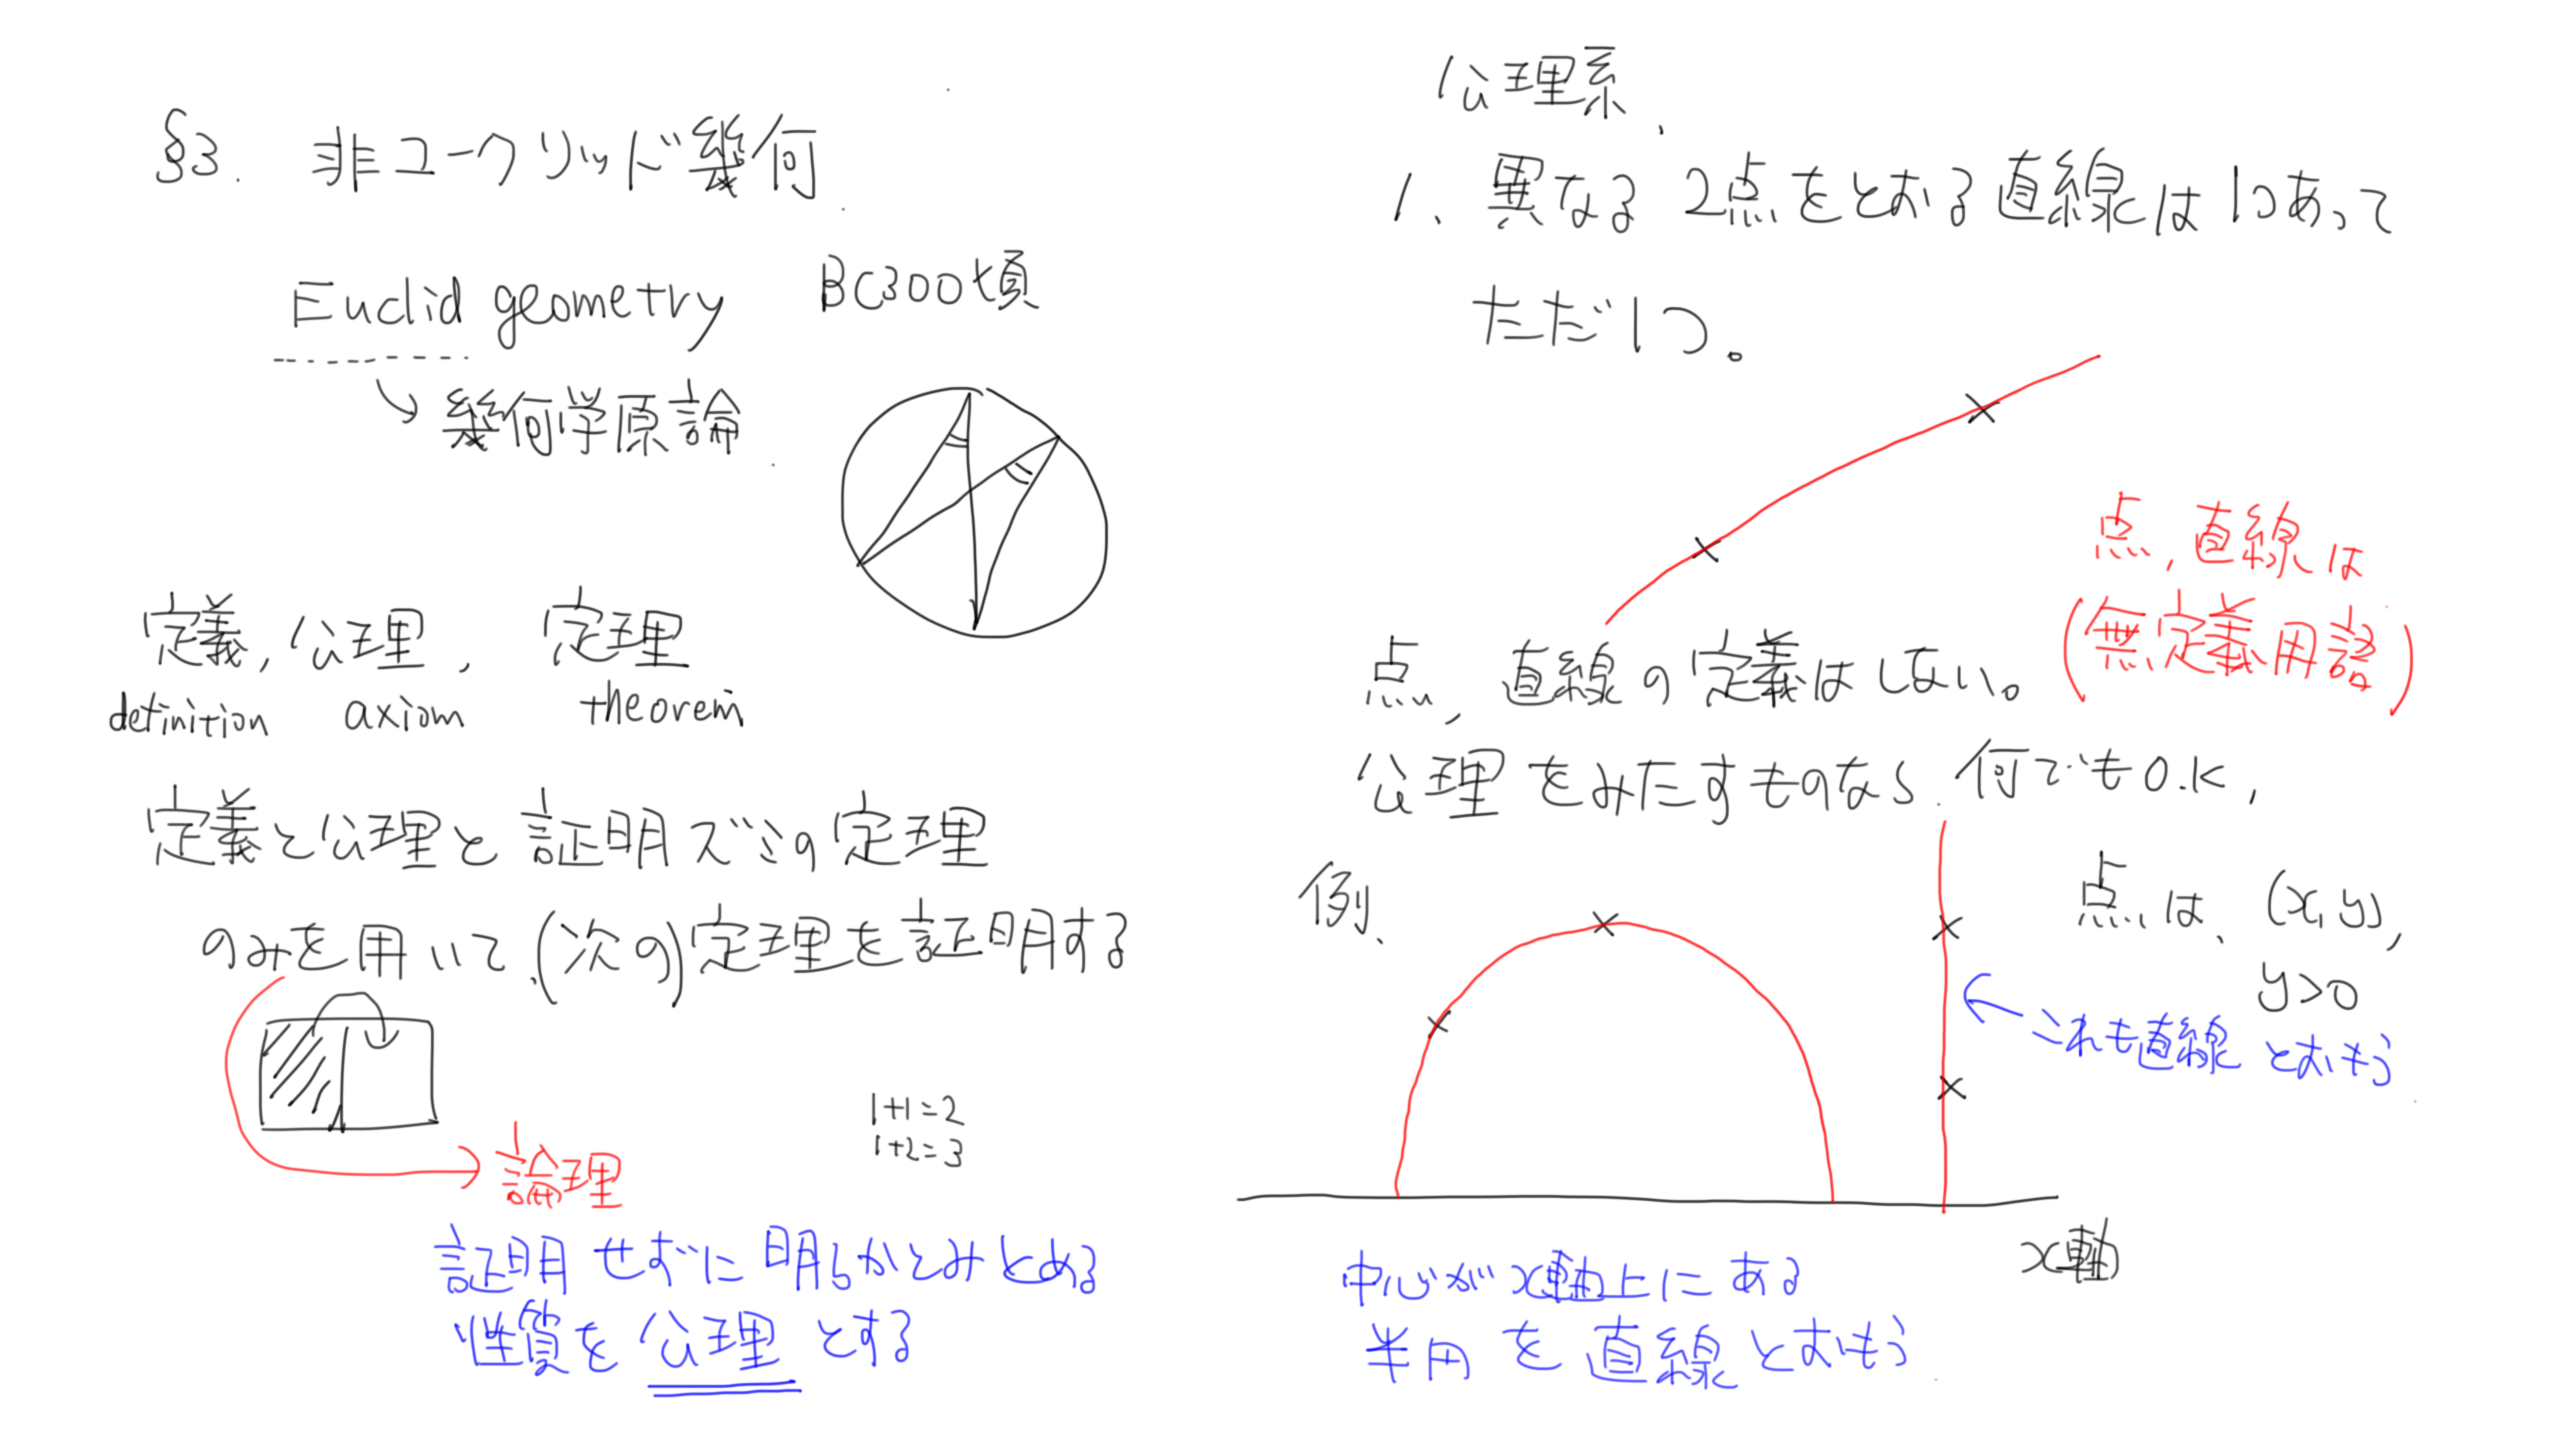 §3. 非ユークリッド幾何
Euclid geometry BC300頃
幾何学原論
定義, 公理, 定理
definition axiom theorem
定義と公理と証明ズミの定理
のみを用いて、(次の)定理を証明する
1+1=2
1+2=3
論理
証明せずに明らかとみとめる
性質を公理とする
公理系、
1、異なる2点をとおる直線は1つあって
ただ1つ。
点, 直線は
(無定義用語)
点, 直線の定義はしない。
公理をみたすものなら、何でもO.K,
例、
点は、(x,y),
y>0
これも直線とおもう
x軸
中心がx軸上にある
半円を直線とおもう